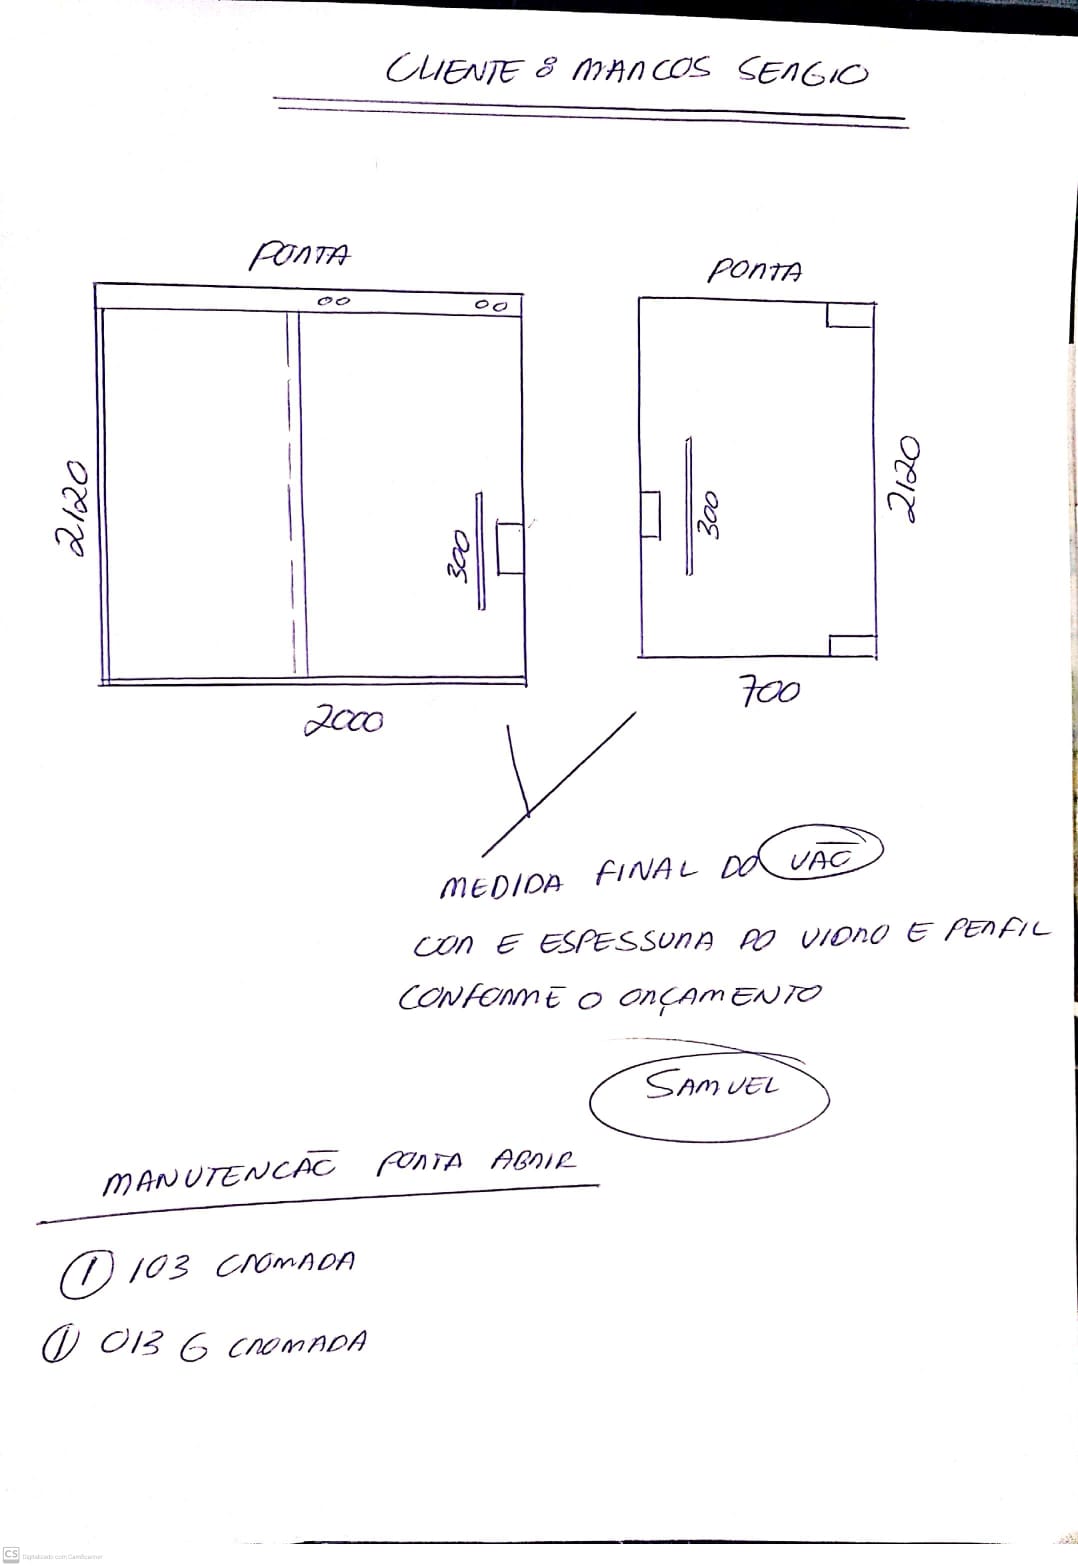 CLIENTE: MARCOS SERGIO
PORTA
PORTA
2120
300
300
2120
2000
700
MEDIDA FINAL DO VÃO
COR E ESPESSURA DO VIDRO E PERFIL
CONFORME O ORÇAMENTO
SAMUEL
MANUTENCÃO PORTA ABRIR
1 103 CROMADA
1 013 G CROMADA
CS Digitalizado com CamScanner